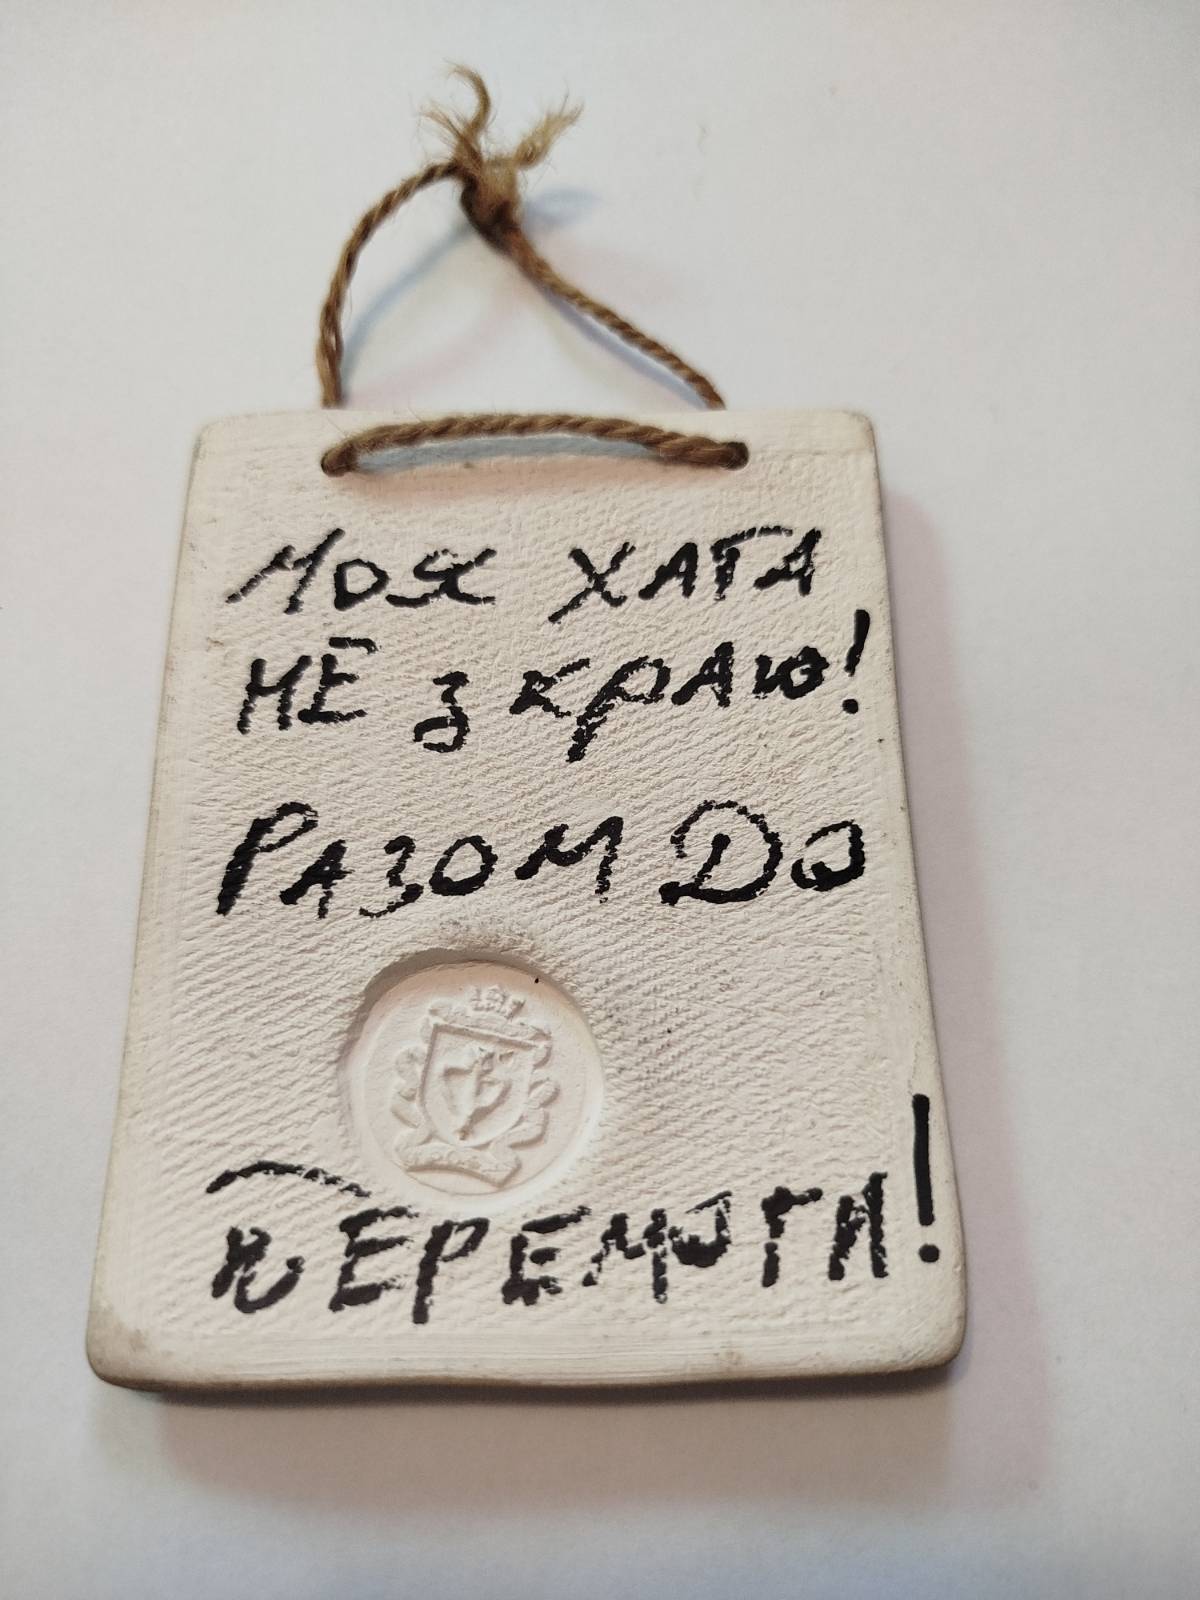 МОЯ ХАТА
НЕ З КРАЮ!
РАЗОМ ДО
ПЕРЕМОГИ!